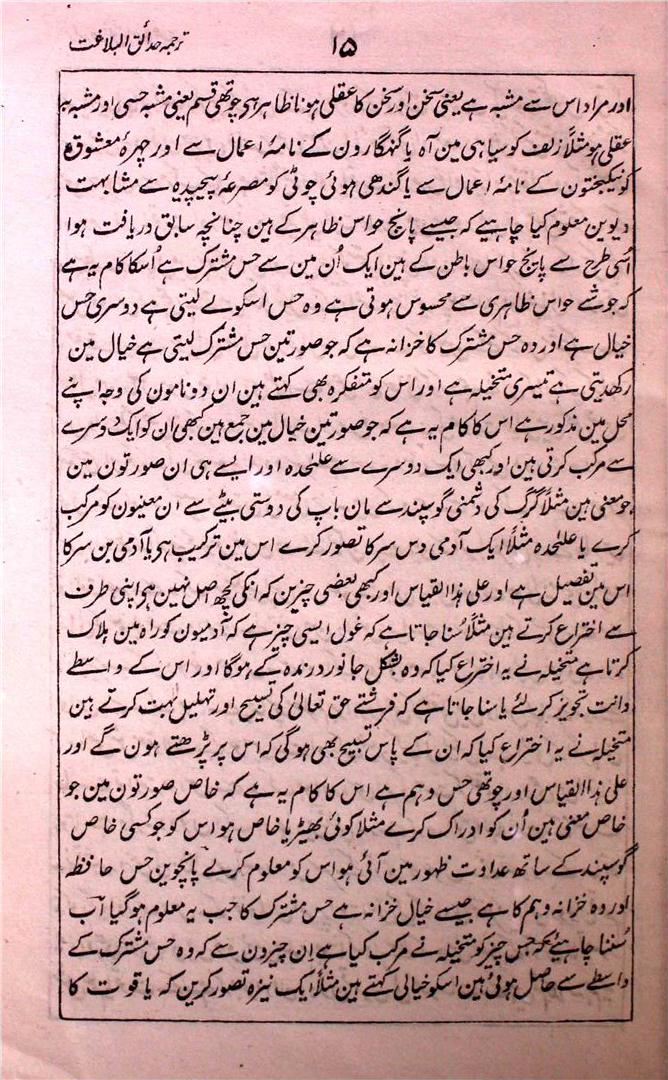 ترجمہ حدائق البلاغت
۱۵
اور مراد اس سے مشبہ ہے یعنی سخن اور سخن کا عقلی ہونا ظاہر ہی چوتھی قسم یعنی مشبہ حسی اور مشبہ بہ
عقلی ہو مثلاً زلف کو سیاہی مین آہ یا گنہگارون کے نامۂ اعمال سے اور چہرۂ معشوق
کو نیکبختون کے نامۂ اعمال سے یا گندھی ہوئی چوٹی کو مصرعۂ پیچیدہ سے مشابہت
دیوین معلوم کیا چاہیے کہ جیسے پانچ حواس ظاہر کے ہین چنانچہ سابق دریافت ہوا
اُسی طرح سے پانچ حواس باطن کے ہین ایک اُن مین سے حس مشترک ہے اُسکا کام یہ ہے
کہ جو شے حواس ظاہری سے محسوس ہوتی ہے وہ حس اسکو لے لیتی ہے دوسری حس
خیال ہے اور وہ حس مشترک کا خزانہ ہے کہ جو صورتین حس مشترک لیتی ہے خیال مین
رکھدیتی ہے تیسری متخیلہ ہے اور اس کو متفکرہ بھی کہتے ہین ان دونامون کی وجہ اپنے
محل مین مذکور ہے اس کا کام یہ ہے کہ جو صورتین خیال مین جمع ہین کبھی ان کو ایک دوسرے
سے مرکب کرتی ہین اور کبھی ایک دوسرے سے علٰحدہ اور ایسے ہی ان صورتون مین
جو معنی ہین مثلاً گرگ کی دشمنی گوسپند سے مان باپ کی دوستی بیٹے سے ان معنیون کو مرکب
کرے یا علٰحدہ مثلاً ایک آدمی دس سر کا تصور کرے اس مین ترکیب ہی یا آدمی بن سر کا
اس مین تفصیل ہے اور علی ہذا القیاس اور کبھی بعضی چیزین کہ انکی کچھ اصل نہین ہی اپنی طرف
سے اختراع کرتے ہین مثلاً سُنا جاتا ہے کہ غول ایسی چیز ہے کہ آدمیون کو راہ مین ہلاک
کرتا ہے متخیلہ نے یہ اختراع کیا کہ وہ بشکل جانور درندہ کے ہوگا اور اس کے واسطے
دانت تجویز کر لئے یا سنا جاتا ہے کہ فرشتے حق تعالیٰ کی تسبیح اور تہلیل بہت کرتے ہین
متخیلہ نے یہ اختراع کیا کہ ان کے پاس تسبیح بھی ہوگی کہ اس پر پڑھتے ہون گے اور
علی ہذا القیاس اور چوتھی حس وہم ہے اس کا کام یہ ہے کہ خاص صورتون مین جو
خاص معنی ہین اُن کو ادراک کرے مثلا کوئی بھیڑیا خاص ہو اس کو جو کسی خاص
گوسپند کے ساتھ عداوت ظہور مین آئی ہو اس کو معلوم کرلے پانچوین حس حافظہ
اور وہ خزانہ وہم کا ہے جیسے خیال خزانہ ہے حس مشترک کا جب یہ معلوم ہوگیا اب
سُننا چاہیئے کہ جس چیز کو متخیلہ نے مرکب کیا ہے ان چیزون سے کہ وہ حس مشترک کے
واسطے سے حاصل ہوئی ہین اسکو خیالی کہتے ہین مثلاً ایک نیزہ تصور کرین کہ یاقوت کا